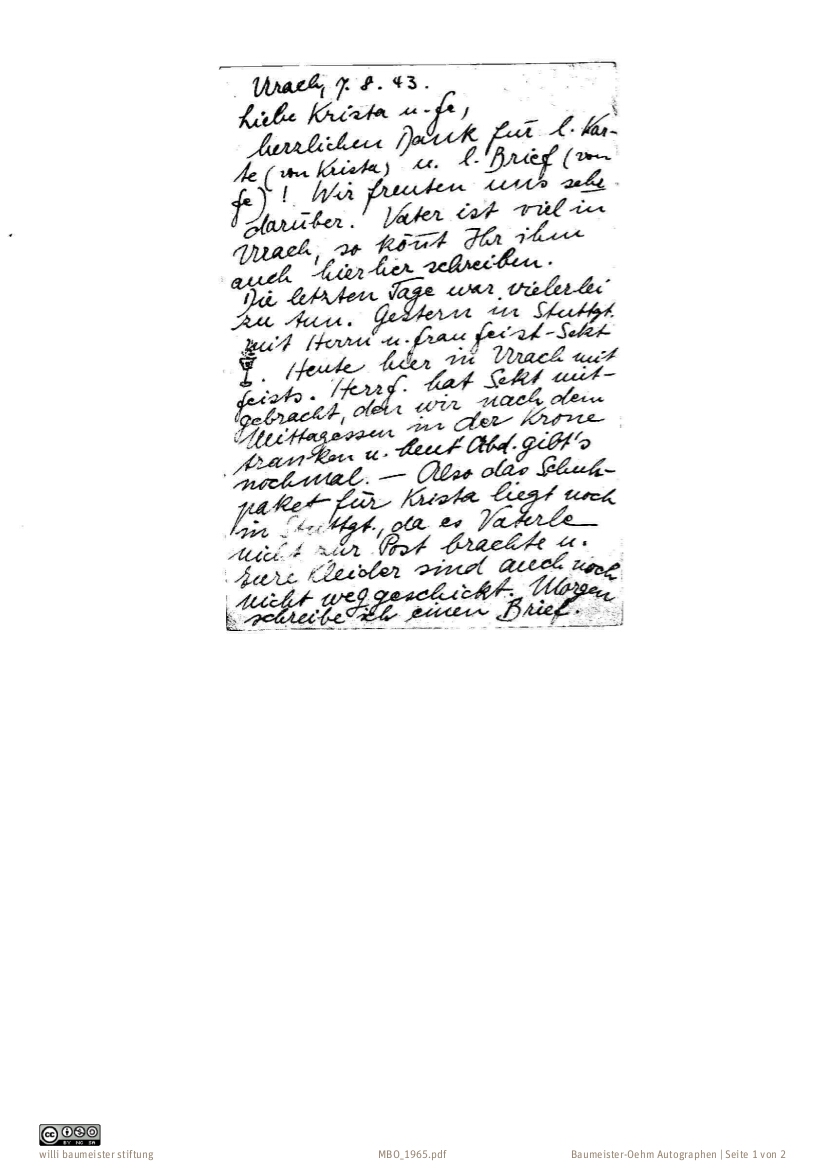 Urach, 7. 8. 43.
Liebe Krista u. Fe,
herzlichen Dank für l. Kar-
te (von Krista) u. l. Brief (von
Fe)! Wir freuten uns sehr
darüber. Vater ist viel in
Urach, so könnt Ihr ihm
auch hierher schreiben.
Die letzten Tage war vielerlei
zu tun. Gestern in Stuttgt.
mit Herrn u. Frau Feist-Sekt
. Heute hier in Urach mit
Feists. Herr F. hat Sekt mit-
gebracht, den wir nach dem
Mittagessen in der Krone
tranken u. heut Abd. gibt's
nochmal. — Also das Schuh-
paket für Krista liegt noch
in Stuttgt., da es Vaterle
nicht zur Post brachte u.
Eure Kleider sind auch noch
nicht weggeschickt. Morgen
schreibe ich einen Brief.
CC BY NC SA
willi baumeister stiftung MBO_1965.pdf Baumeister-Oehm Autographen | Seite 1 von 2